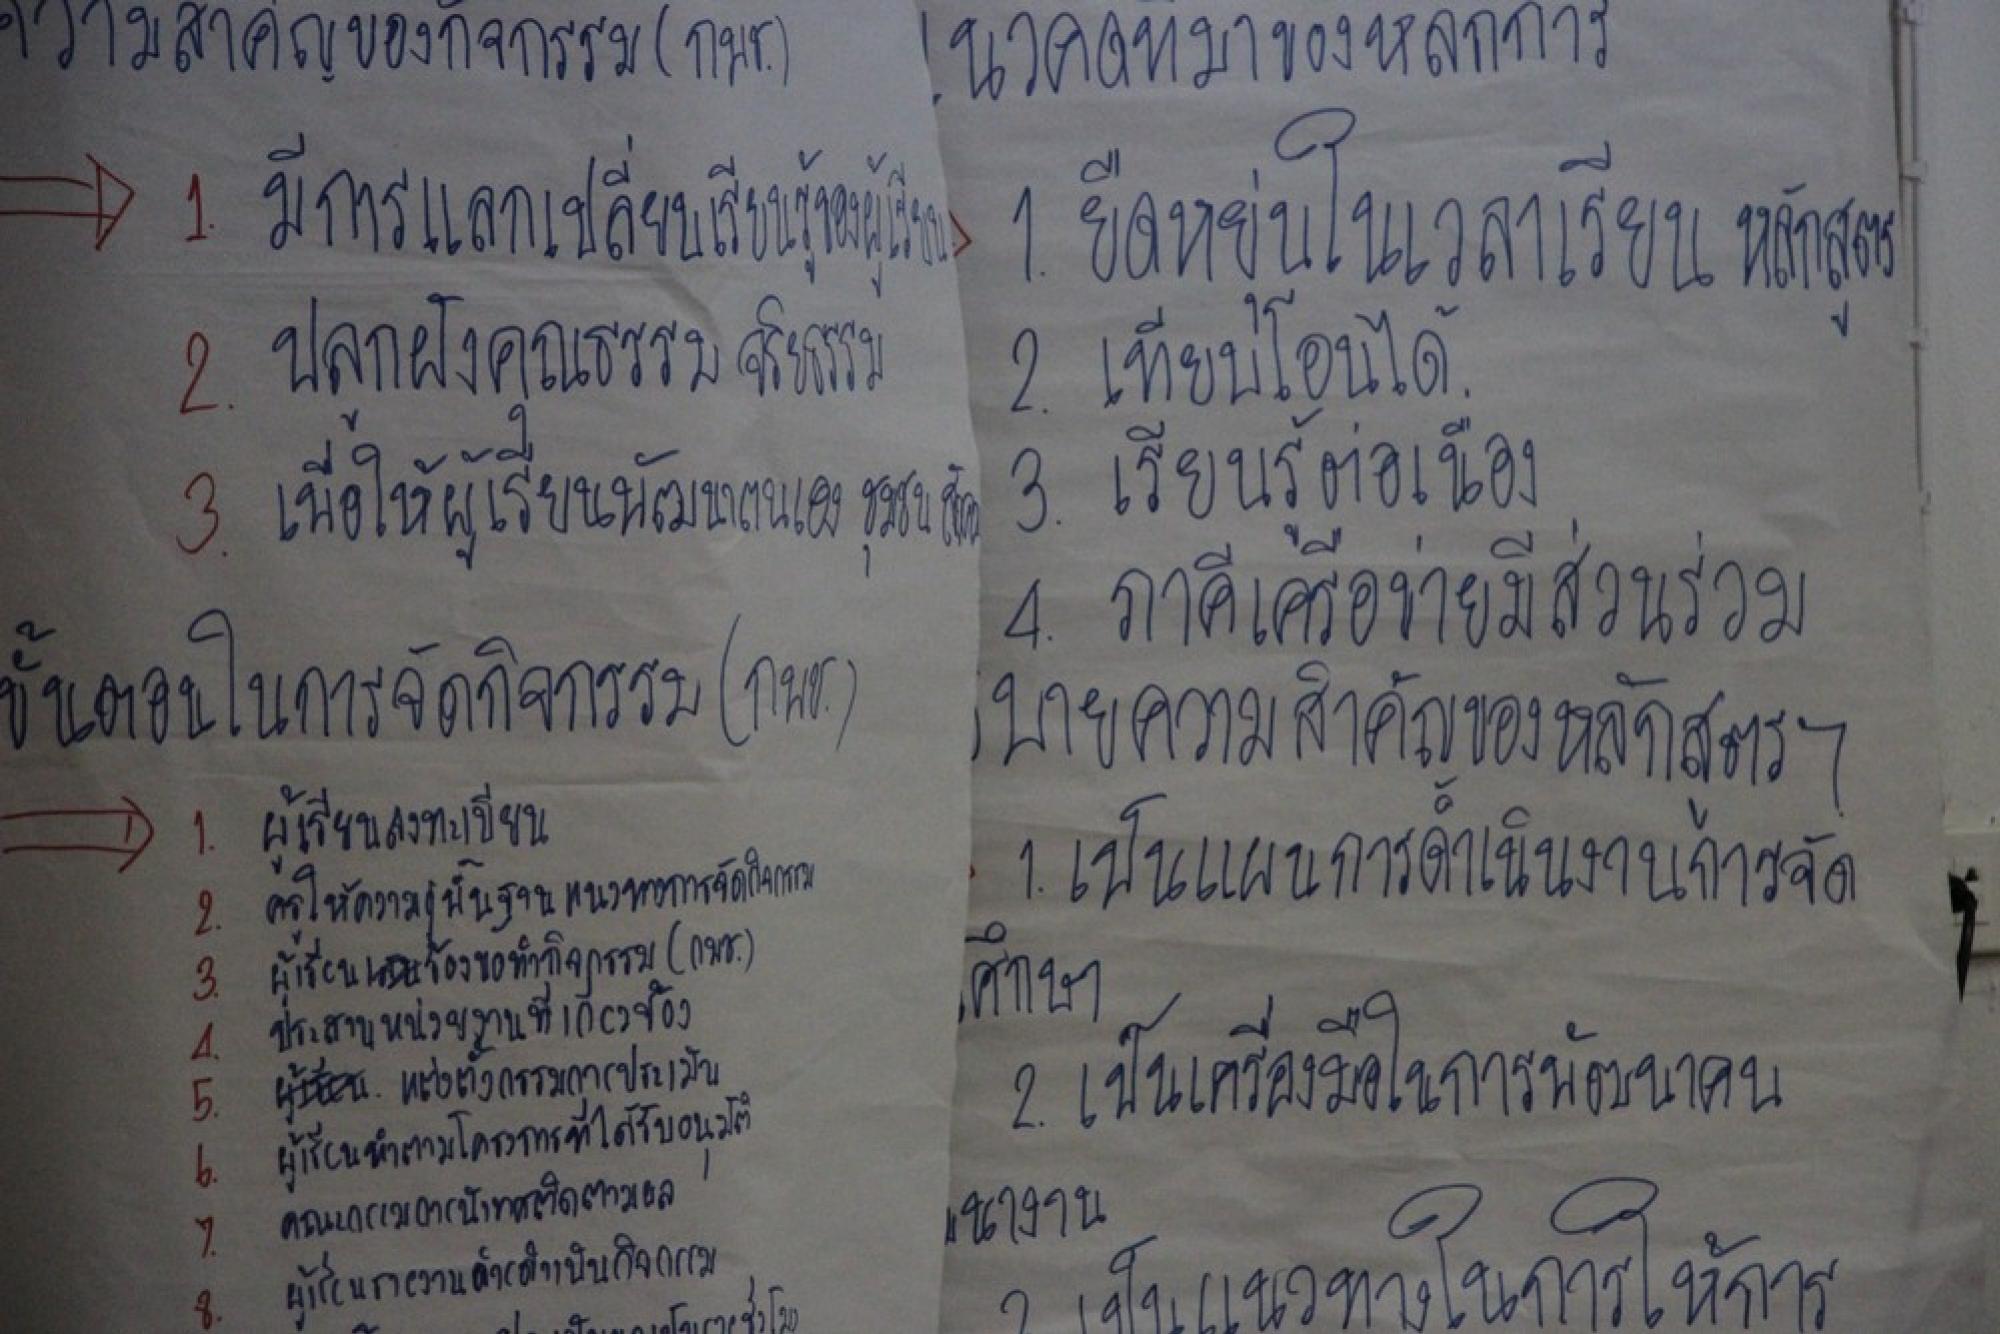 ความสำคัญของกิจกรรม (กพช.)
1. มีการแลกเปลี่ยนเรียนรู้ของผู้เรียน
2. ปลูกฝังคุณธรรม จริยธรรม
3. เพื่อให้ผู้เรียนพัฒนาตนเอง ชุมชน สังคม
ขั้นตอนในการจัดกิจกรรม (กพช.)
1. ผู้เรียนลงทะเบียน
2. ครูให้ความรู้พื้นฐาน แนวทางการจัดกิจกรรม
3. ผู้เรียน ร้องขอทำกิจกรรม (กพช.)
4. ประสานหน่วยงานที่เกี่ยวข้อง
5. แต่งตั้งกรรมการประเมิน
6. ผู้เรียนทำตามโครงการที่ได้รับอนุมัติ
7. คณะกรรมการนิเทศติดตามผล
8. ผู้เรียนรายงานผลการดำเนินกิจกรรม
แนวคิดที่มาของหลักการ
1. ยืดหยุ่นในเวลาเรียน หลักสูตร
2. เทียบโอนได้.
3. เรียนรู้ต่อเนื่อง
4. ภาคีเครือข่ายมีส่วนร่วม
บายความสำคัญของหลักสูตรฯ
1. เป็นแผนการดำเนินงานการจัด
ศึกษา
2. เป็นเครื่องมือในการพัฒนาคน
นางาน
3. เป็นแนวทางในการให้การ